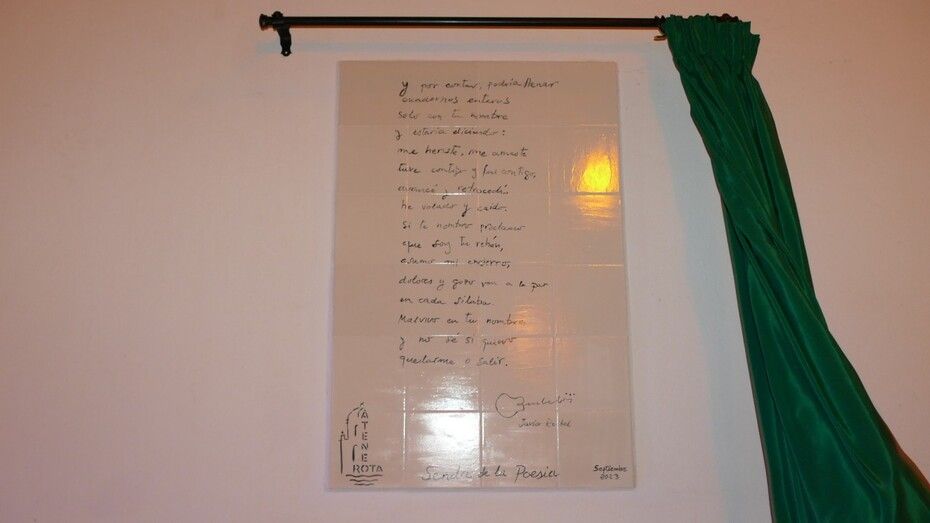 y por contar, podría llenar
cuadernos enteros
solo con tu nombre
y estaría diciendo:
me heriste, me amaste
tuve contigo y fui contigo,
avancé y retrocedí,
he volado y caído.
Si tu nombro proclamo
que soy tu rehén,
asumo mi encierro,
dolores y gozo van a la par
en cada sílaba.
Malvivo en tu nombre
y no sé si quiero
quedarme o salir.
Javier
ATENEO
ROTA
Senda de la Poesía
Septiembre
2023